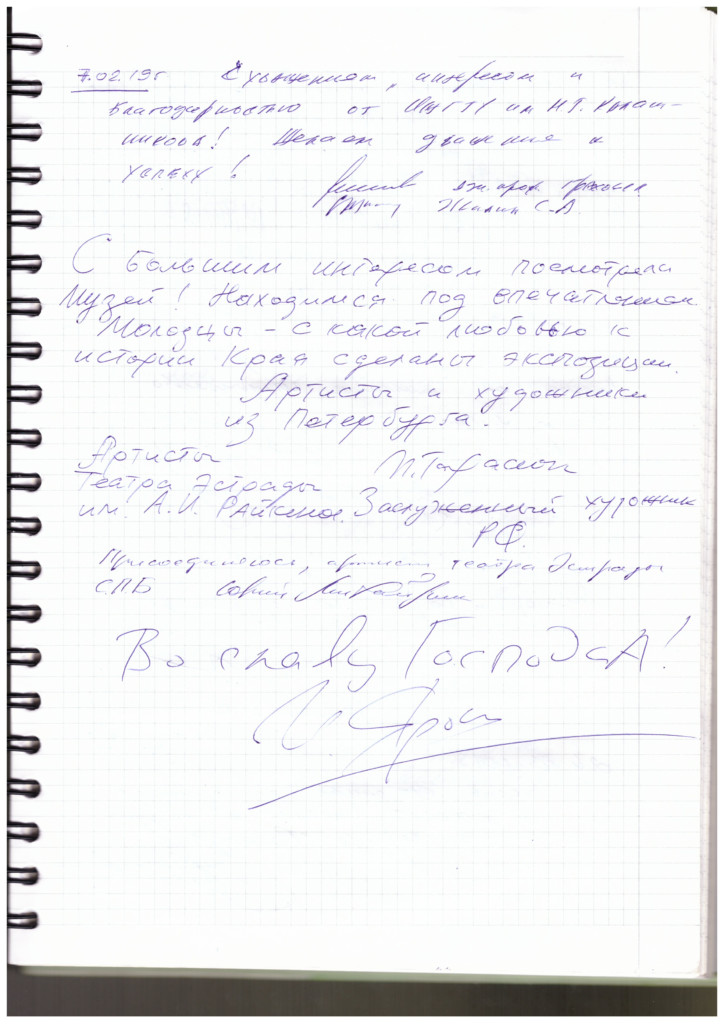 7.02.19г С уважением, интересом и
благодарностью от ИжГТУ им М.Т. Калаш-
никова! Желаем движения и
успеха!
С.А.
С большим интересом посмотрели
Музей! Находимся под впечатлением.
Молодцы – с какой любовью к
истории Края сделаны экспозиции.
Артисты и художники
из Петербурга.
Артисты
Театра Эстрады
им. А.И. Райкина. Заслуженный художник
РФ.
Присоединяюсь, артист театра Эстрады
СПБ
Во славу Господа!